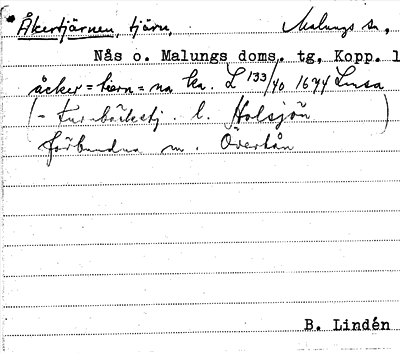 Åkertjärnen, tjärn, Malungs sn,
Nås o. Malungs doms. tg, Kopp. l
åcker=tiern=na Ka. L 133/40 1644 Lusa
(- Furubäckstj. l. Holsjön )
förbundna m. Överhån
B. Lindén